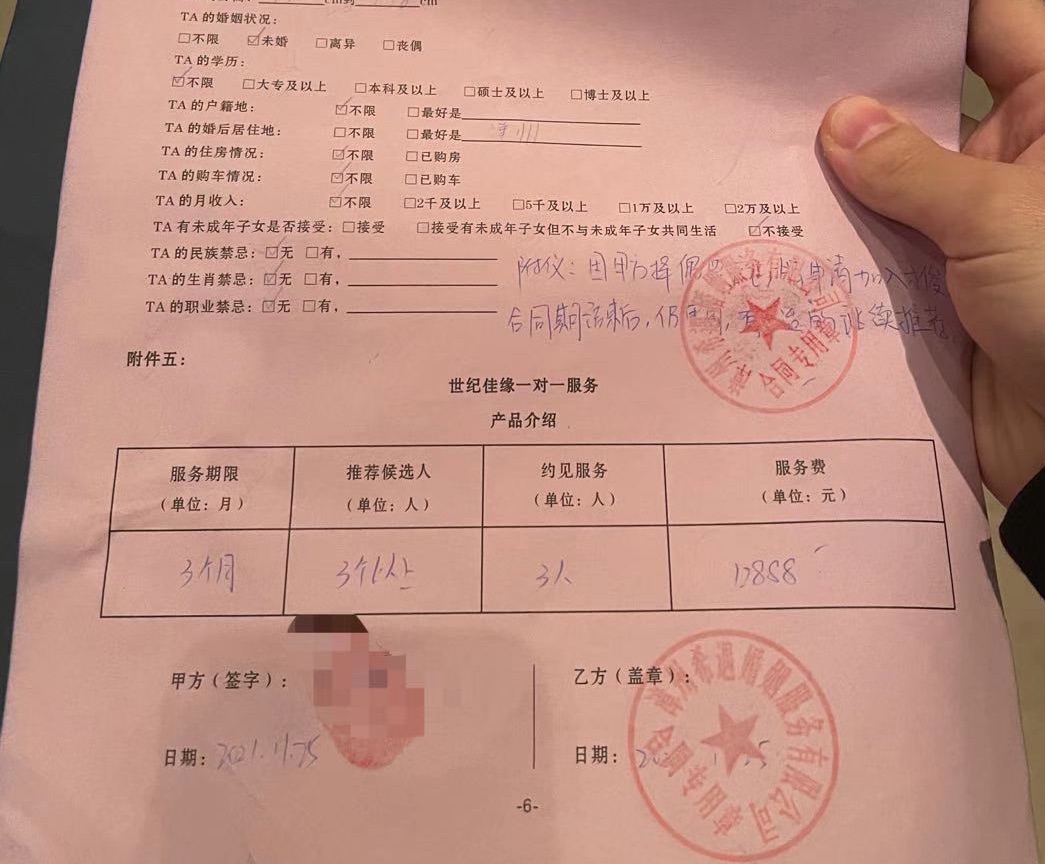 cm到 cm
TA 的婚姻状况：
□不限 ☑未婚 □离异 □丧偶
TA 的学历：
☑不限 □大专及以上 □本科及以上 □硕士及以上 □博士及以上
TA 的户籍地： ☑不限 □最好是
TA 的婚后居住地： □不限 □最好是
TA 的住房情况： ☑不限 □已购房
TA 的购车情况： ☑不限 □已购车
TA 的月收入： ☑不限 □2千及以上 □5千及以上 □1万及以上 □2万及以上
TA 有未成年子女是否接受：□接受 □接受有未成年子女但不与未成年子女共同生活 ☑不接受
TA 的民族禁忌：☑无 □有，
TA 的生肖禁忌：☑无 □有，
TA 的职业禁忌：☑无 □有，
因甲方择偶 申请加入
合同期结束后，仍 继续推荐
合同专用章
附件五：
世纪佳缘一对一服务
产品介绍
服务期限 推荐候选人 约见服务 服务费
（单位：月） （单位：人） （单位：人） （单位：元）
3个月 3个以上 3人
甲方（签字）： 乙方（盖章）：
日期：2021.11.25 日期：
婚姻服务有限公司
合同专用章
-6-